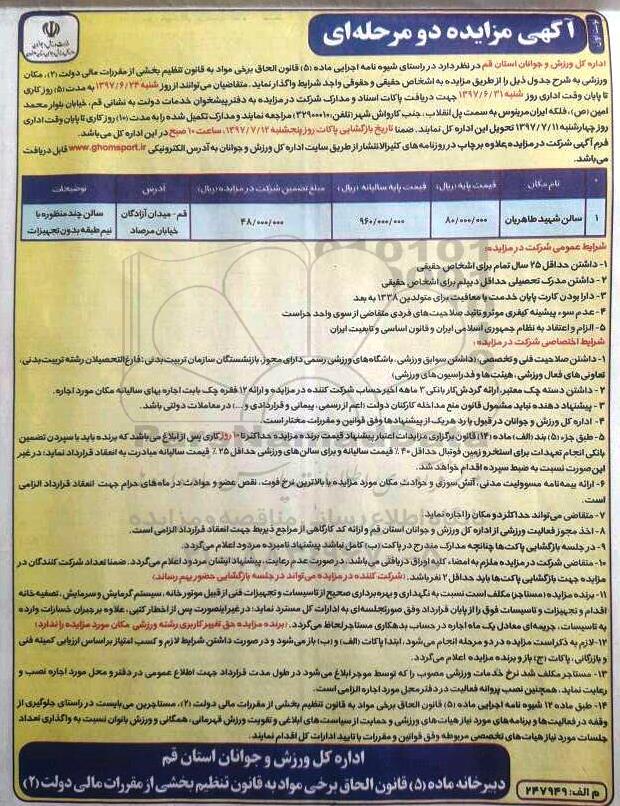 نوبت اول
آگهی مزایده دو مرحله‌ای
اداره کل ورزش و جوانان استان قم در نظر دارد در راستای شیوه نامه اجرایی ماده (۵) قانون الحاق برخی مواد به قانون تنظیم بخشی از مقررات مالی دولت (۲)، مکان
ورزشی به شرح جدول ذیل را از طریق مزایده به اشخاص حقیقی و حقوقی واجد شرایط واگذار نماید. متقاضیان می‌توانند از روز شنبه ۱۳۹۷/۶/۲۴ به مدت (۵) روز کاری
تا پایان وقت اداری روز شنبه ۱۳۹۷/۶/۳۱ جهت دریافت پاکات اسناد و مدارک شرکت در مزایده به دفتر پیشخوان خدمات دولت به نشانی قم، خیابان بلوار محمد
امین (ص)، فلکه ایران مرینوس به سمت پل انقلاب، جنب کارواش شهر (تلفن: ۳۲۹۰۰۰۱۰) مراجعه نمایند و مدارک تکمیل شده را به مدت (۱۰) روز کاری تا پایان وقت اداری
روز چهارشنبه ۱۳۹۷/۷/۱۱ تحویل این اداره کل نمایند. ضمنا تاریخ بازگشایی پاکات روز پنجشنبه ۱۳۹۷/۷/۱۲ ساعت ۱۰ صبح در این اداره کل می‌باشد.
فرم آگهی شرکت در مزایده علاوه بر چاپ در روزنامه های کثیرالانتشار از طریق سایت اداره کل ورزش و جوانان به آدرس الکترونیکی www.ghomsport.ir قابل دریافت
می‌باشد.
نام مکان قیمت پایه (ریال) قیمت پایه سالیانه (ریال) مبلغ تضمین شرکت در مزایده (ریال) آدرس توضیحات
۱ سالن شهید طاهریان ۸۰/۰۰۰/۰۰۰ ۹۶۰/۰۰۰/۰۰۰ ۴۸/۰۰۰/۰۰۰ قم - میدان آزادگان خیابان مرصاد سالن چند منظوره با نیم طبقه بدون تجهیزات
شرایط عمومی شرکت در مزایده:
۱- داشتن حداقل ۲۵ سال تمام برای اشخاص حقیقی
۲- داشتن مدرک تحصیلی حداقل دیپلم برای اشخاص حقیقی
۳- دارا بودن کارت پایان خدمت یا معافیت برای متولدین ۱۳۳۸ به بعد
۴- عدم سوء پیشینه کیفری موثر و تائید صلاحیت های فردی متقاضی از سوی واحد حراست
۵- الزام و اعتقاد به نظام جمهوری اسلامی ایران و قانون اساسی و تابعیت ایران
شرایط اختصاصی شرکت در مزایده:
۱- داشتن صلاحیت فنی و تخصصی: (داشتن سوابق ورزشی، باشگاه های ورزشی رسمی دارای مجوز، بازنشستگان سازمان تربیت بدنی؛ فارغ التحصیلان رشته تربیت بدنی،
تعاونی های فعال ورزشی، هیئت ها و فدراسیون های ورزشی)
۲- داشتن دسته چک معتبر، ارائه گردش کار بانکی ۳ ماهه اخیر حساب شرکت کننده در مزایده و ارائه ۱۲ فقره چک بابت اجاره بهای سالیانه مکان مورد اجاره.
۳- پیشنهاد دهنده نباید مشمول قانون منع مداخله کارکنان دولت (اعم از رسمی، پیمانی و قراردادی و...) در معاملات دولتی باشد.
۴- اداره کل ورزش و جوانان در قبول یا رد هر یک از پیشنهادها وفق قوانین و مقررات مختار است.
۵- طبق جزء (۵) بند (الف) ماده (۱۴) قانون برگزاری مزایدات اعتبار پیشنهاد قیمت برنده مزایده حداکثر تا ۱۰ روز کاری پس از ابلاغ می‌باشد که برنده باید با سپردن تضمین
بانکی انجام تعهدات برای استخر و زمین فوتبال حداقل ۴۰ ٪ قیمت سالیانه و برای سالن های ورزشی حداقل ۲۵ ٪ قیمت سالیانه مبادرت به انعقاد قرارداد نماید؛ در غیر
این صورت نسبت به ضبط سپرده اقدام خواهد شد.
۶- ارائه بیمه نامه مسوولیت مدنی، آتش سوزی و حوادث مکان مورد مزایده با بالاترین نرخ فوت، نقص عضو و حوادث در ماه های حرام جهت انعقاد قرارداد الزامی
است.
۷- متقاضی می‌تواند حداکثر دو مکان را اجاره نماید.
۸- اخذ مجوز فعالیت ورزشی از اداره کل ورزش و جوانان استان قم و ارائه کد کارگاهی از مراجع ذیربط جهت انعقاد قرارداد الزامی است.
۹- در جلسه بازگشایی پاکت ها چنانچه مدارک مندرج در پاکت (ب) کامل نباشد پیشنهاد نامبرده مردود اعلام می‌گردد.
۱۰- متقاضی شرکت در مزایده ملزم به امضاء کلیه اوراق دریافتی می‌باشد. در صورت عدم رعایت، پیشنهاد ایشان مردود اعلام می‌گردد. ضمنا تعداد شرکت کنندگان در
مزایده جهت بازگشایی پاکت ها باید حداقل ۲ نفر باشد. (شرکت کننده در مزایده می‌تواند در جلسه بازگشایی حضور بهم رساند)
۱۱- برنده مزایده (مستاجر) مکلف است نسبت به نگهداری و بهره برداری صحیح از تاسیسات و تجهیزات فنی از قبیل موتورخانه، سیستم گرمایش و سرمایش، تصفیه خانه
اقدام و تجهیزات و تاسیسات فوق را از پایان قرارداد وفق صورتجلسه‌ای به ادارات کل مسترد نماید؛ در غیر اینصورت پس از اخطار کتبی، علاوه بر جبران خسارات وارده
به تاسیسات، جریمه‌ای معادل یک ماه اجاره در حساب بدهکاری مستاجر لحاظ می‌گردد. (برنده مزایده حق تغییر کاربری رشته ورزشی مکان مورد مزایده را ندارد)
۱۲- لازم به ذکر است مزایده در دو مرحله انجام می‌شود، ابتدا پاکات (الف) و (ب) باز می‌شود و در صورت داشتن شرایط لازم و کسب امتیاز براساس ارزیابی کمیته فنی
و بازرگانی، پاکات (ج) باز و برنده مزایده اعلام می‌گردد.
۱۳- مستاجر مکلف شد نرخ خدمات ورزشی مصوب را که توسط موجر ابلاغ می‌شود در طول مدت قرارداد جهت اطلاع عمومی در دفتر و محل مورد اجاره نصب و
رعایت نماید. همچنین نصب پروانه فعالیت در دفتر محل مورد اجاره الزامی است.
۱۴- طبق ماده ۱۲ شیوه نامه اجرایی ماده (۵) قانون الحاق برخی مواد به قانون تنظیم بخشی از مقررات مالی دولت (۲)، مستاجرین می‌بایست در راستای جلوگیری از
وقفه در فعالیت ها و برنامه های مورد نیاز هیات های ورزشی و حمایت از سیاست های ابلاغی و تقویت ورزش قهرمانی، همگانی و ورزش بانوان نسبت به واگذاری تعداد
جلسات مورد نیاز هیات های تخصصی مربوطه وفق قوانین و مقررات با تایید ادارات کل اقدام نمایند.
اداره کل ورزش و جوانان استان قم
دبیرخانه ماده (۵) قانون الحاق برخی مواد به قانون تنظیم بخشی از مقررات مالی دولت (۲)
م الف: ۲۴۷۹۴۹